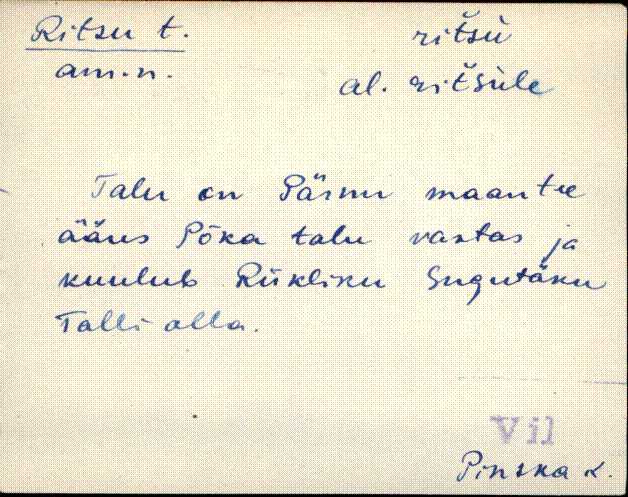 Ritsu t. ritšù
am.n. al. ritšùle
Talu on Pärnu maantee
ääres Põka talu vastas ja
kuulub Riikliku Sugutäku
Talli alla.
Vil
Pinska k.